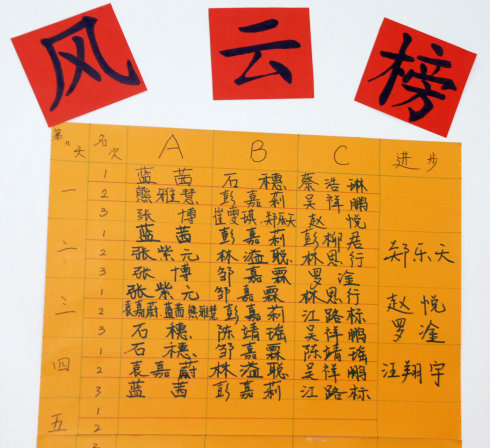 风云榜
第n天 名次 A B C 进步
一 1 蓝茜 石穗 蔡浩琳
2 熊雅慧 彭嘉莉 吴祥鹏
3 张博 崔雯琪 郑乐天 赵悦
二 1 蓝茜 彭嘉莉 彭柳君 郑乐天
2 张紫元 林溢聪 林思行
3 张博 邹嘉霖 罗淦
三 1 张紫元 邹嘉霖 林思行 赵悦
2 袁嘉蔚 蓝茜 熊雅慧 彭嘉莉 江路标 罗淦
3 石穗 陈靖瑶 吴祥鹏
四 1 石穗 邹嘉霖 陈靖瑶 汪翔宇
2 袁嘉蔚 林溢聪 吴祥鹏
3 蓝茜 彭嘉莉 江路标
五 1
2
3